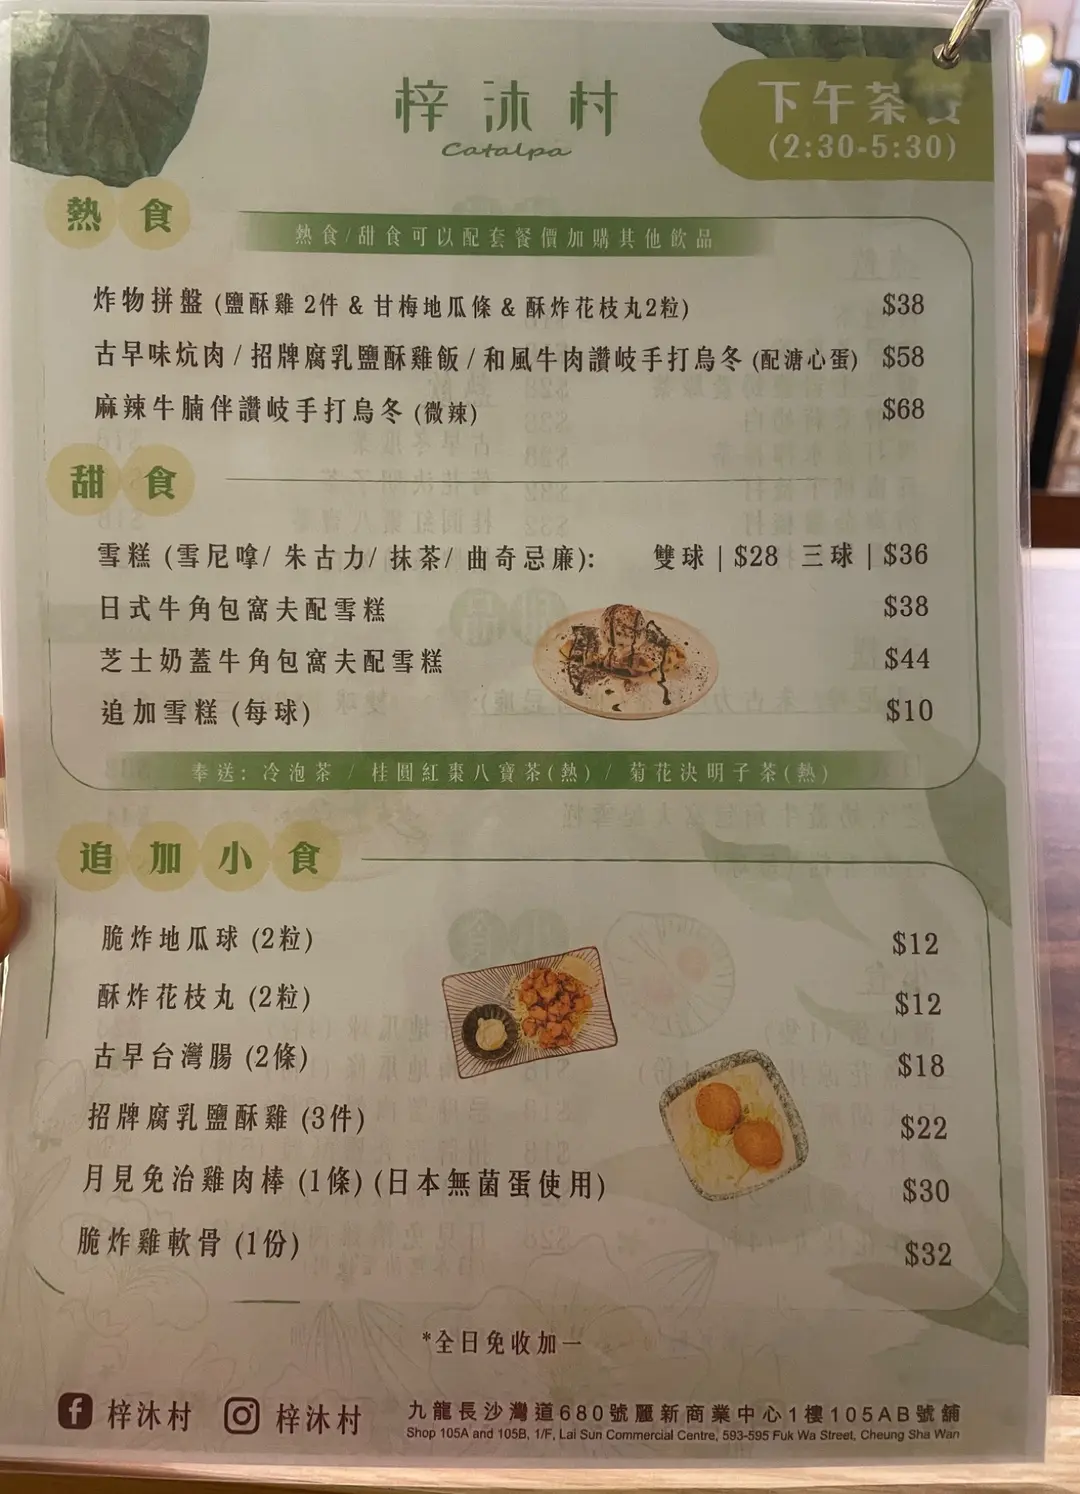 梓沐村
Catalpa
下午茶餐
(2:30-5:30)
熱食
熱食/甜食可以配套餐價加購其他飲品
炸物拼盤 (鹽酥雞 2件 & 甘梅地瓜條 & 酥炸花枝丸2粒) $38
古早味炕肉 / 招牌腐乳鹽酥雞飯 / 和風牛肉讚岐手打烏冬 (配溏心蛋) $58
麻辣牛腩伴讚岐手打烏冬 (微辣) $68
甜食
雪糕 (雪尼嗱/ 朱古力/ 抹茶/ 曲奇忌廉): 雙球 | $28 三球 | $36
日式牛角包窩夫配雪糕 $38
芝士奶蓋牛角包窩夫配雪糕 $44
追加雪糕 (每球) $10
奉送: 冷泡茶 / 桂圓紅棗八寶茶(熱) / 菊花決明子茶(熱)
追加小食
脆炸地瓜球 (2粒) $12
酥炸花枝丸 (2粒) $12
古早台灣腸 (2條) $18
招牌腐乳鹽酥雞 (3件) $22
月見免治雞肉棒 (1條) (日本無菌蛋使用) $30
脆炸雞軟骨 (1份) $32
*全日免收加一
梓沐村 梓沐村
九龍長沙灣道680號麗新商業中心1樓105AB號舖
Shop 105A and 105B, 1/F, Lai Sun Commercial Centre, 593-595 Fuk Wa Street, Cheung Sha Wan